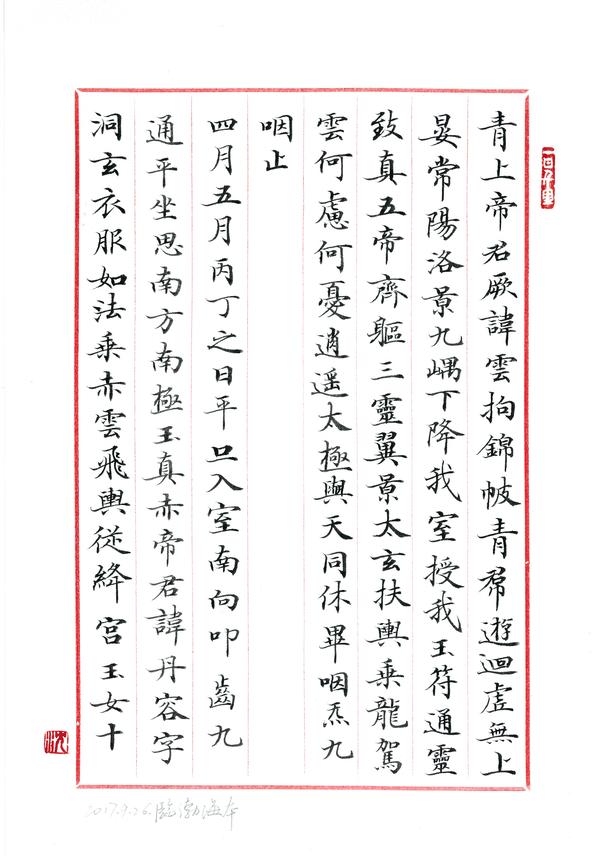 青上帝君厥諱雲拘錦帔青帬遊迴虛無上
晏常陽洛景九嵎下降我室授我玉符通靈
致真五帝齊軀三靈翼景太玄扶輿乘龍駕
雲何慮何憂逍遥太極與天同休畢咽炁九
咽止
四月五月丙丁之日平旦入室南向叩齒九
通平坐思南方南極玉真赤帝君諱丹容字
洞玄衣服如法乘赤雲飛輿從絳宮玉女十
2017.9.26.臨渤海本